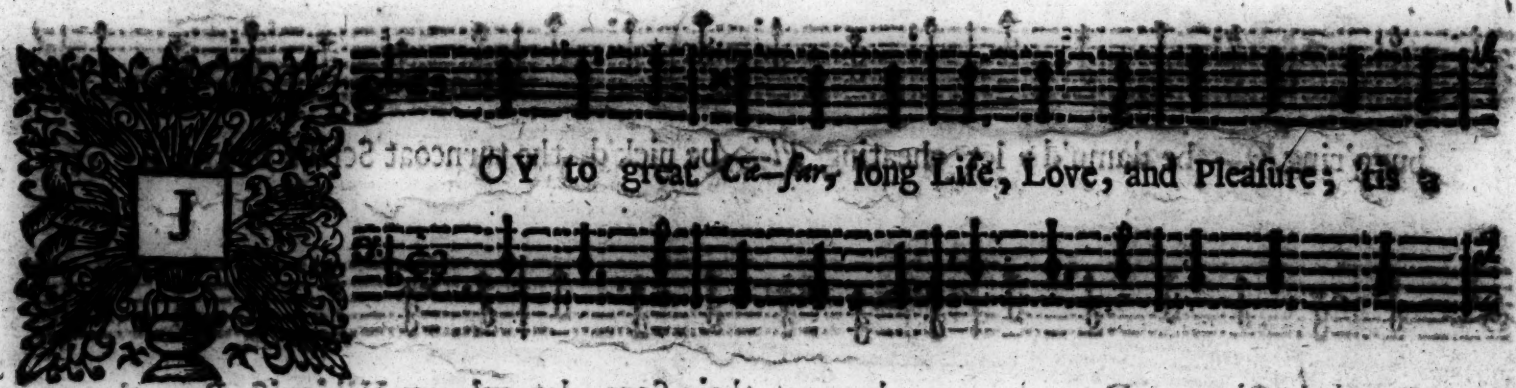 JOY to great Cæ-ſar, long Life, Love, and Pleaſure; 'tis a